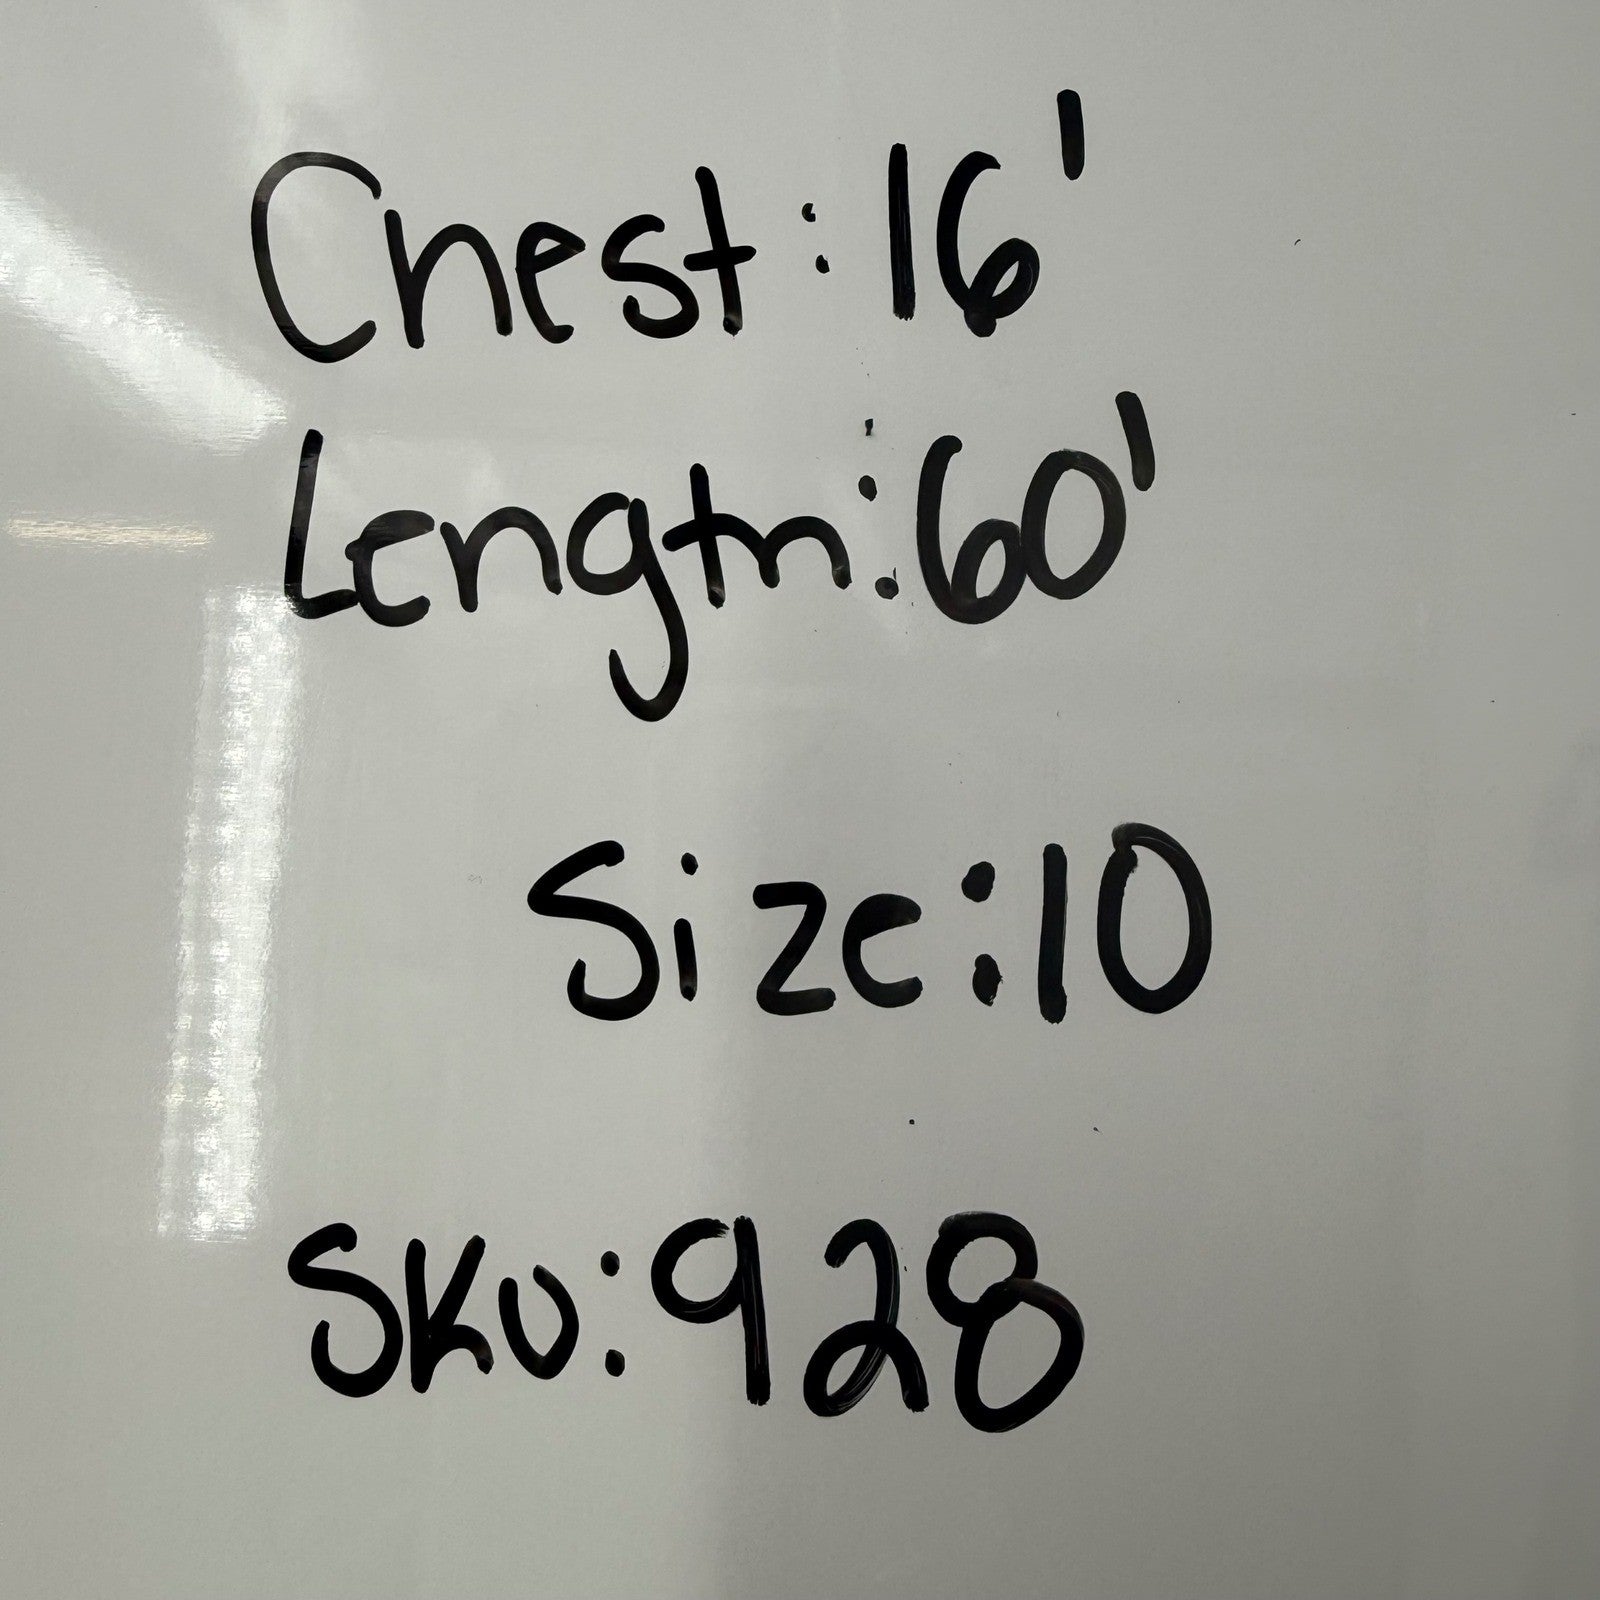 Chest: 16'
Length: 60'
Size: 10
SKU: 928